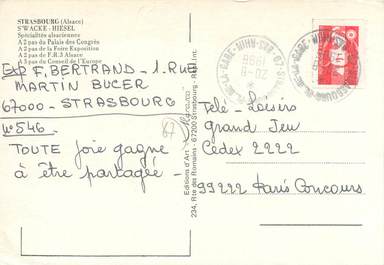 STRASBOURG (Alsace)
S'WACKE - HIESEL
Spécialités alsaciennes
A 2 pas du Palais des Congrès
A 2 pas de la Foire Exposition
A 2 pas de F.R.3 Alsace
A 3 pas du Conseil de l'Europe
Exp F. BERTRAND - 1. Rue
MARTIN BUCER
67000 - STRASBOURG
N° 546
67
TOUTE Joie gagne
à être partagée -
Editions d'Art
234, Rte des Romains - 67200 Strasbourg - Repr. Int.
20-8
1996
Télé - Loisirs
Grand Jeu
Cedex 2222
99222 Paris Concours